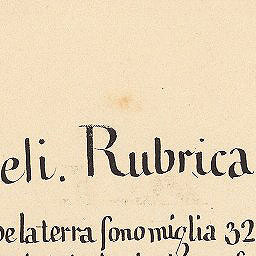 eli. Rubrica
de la terra sono miglia 32